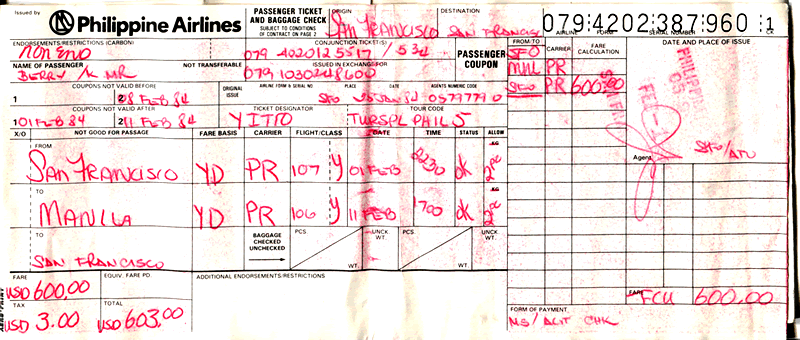 Issued by
Philippine Airlines
PASSENGER TICKET
AND BAGGAGE CHECK
SUBJECT TO CONDITIONS
OF CONTRACT ON PAGE 2
ORIGIN
DESTINATION
SAN FRANCISCO SAN FRANCISCO
079 4202 387 960 1
AIRLINE FORM SERIAL NUMBER CK
ENDORSEMENTS/RESTRICTIONS (CARBON)
NON ENO
CONJUNCTION TICKET(S)
079 4020125517 / 534
PASSENGER
COUPON
NAME OF PASSENGER
NOT TRANSFERABLE
BERRY /K MR
ISSUED IN EXCHANGE FOR
079 1030248600
FROM/TO CARRIER FARE CALCULATION
DATE AND PLACE OF ISSUE
SFO
MNL PR
SFO PR 600.00
COUPONS NOT VALID BEFORE
1 2 8 FEB 84
ORIGINAL
ISSUE
AIRLINE FORM & SERIAL NO PLACE DATE AGENTS NUMERIC CODE
SFO 05 JAN 84 0579779 0
COUPONS NOT VALID AFTER
1 01 FEB 84 2 11 FEB 84
TICKET DESIGNATOR
YITIO
TOUR CODE
TURSPL PHIL 5
X/O NOT GOOD FOR PASSAGE FARE BASIS CARRIER FLIGHT/CLASS DATE TIME STATUS ALLOW
FROM
SAN FRANCISCO YD PR 107 Y 01 FEB 2230 OK 2 PC
TO
MANILA YD PR 106 Y 11 FEB 1700 OK 2 PC
TO
SAN FRANCISCO
BAGGAGE
CHECKED
UNCHECKED
PCS WT. UNCK. WT. PCS WT. UNCK. WT.
FEB - 1
Agent
SFO/ATO
FARE
USD 600.00
EQUIV. FARE PD.
ADDITIONAL ENDORSEMENTS/RESTRICTIONS
TAX
USD 3.00
TOTAL
USD 603.00
FARE
FCU 600.00
FORM OF PAYMENT
MS/ CHK